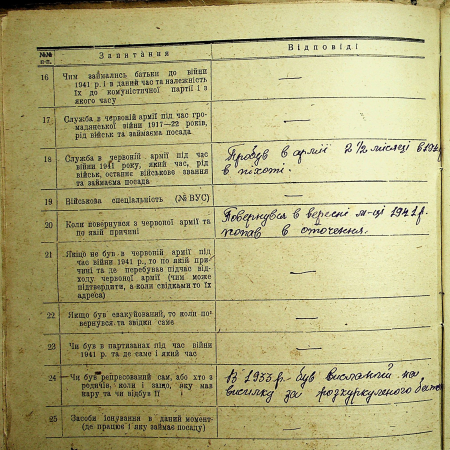 №№ п-п. Запитання Відповіді
16 Чим займались батьки до війни
1941 р. і в даний час та належність
їх до комуністичної партії і з
якого часу —
17 Служба в червоній армії під час гро-
мадянської війни 1917—22 років,
рід військ та займаєма посада —
18 Служба в червоній армії під час
війни 1941 року, який час, рід
військ, останнє військове звання
та займаєма посада
Пробув в армії 2 1/2 місяці в 1941
в піхоті.
19 Військова спеціальність (№ ВУС) —
20 Коли повернувся з червоної армії та
по якій причині
Повернувся в вересні м-ці 1941 р.
попав в оточення.
21 Якщо не був в червоній армії під
час війни 1941 р., то по якій при-
чині та де перебував підчас від-
ходу червоної армії (чим може
підтвердити, а коли свідками то їх
адреса) —
22 Якщо був евакуйований, то коли по-
вернувся та звідки саме —
23 Чи був в партизанах під час війни
1941 р. та де саме і який час —
24 Чи був репресований сам, або хто з
родичів, коли і защо, яку мав
кару та чи відбув її
В 1933 р. був висланий на
висилку за розкуркуленого
25 Засоби існування в даний момент
(де працює і яку займає посаду) —